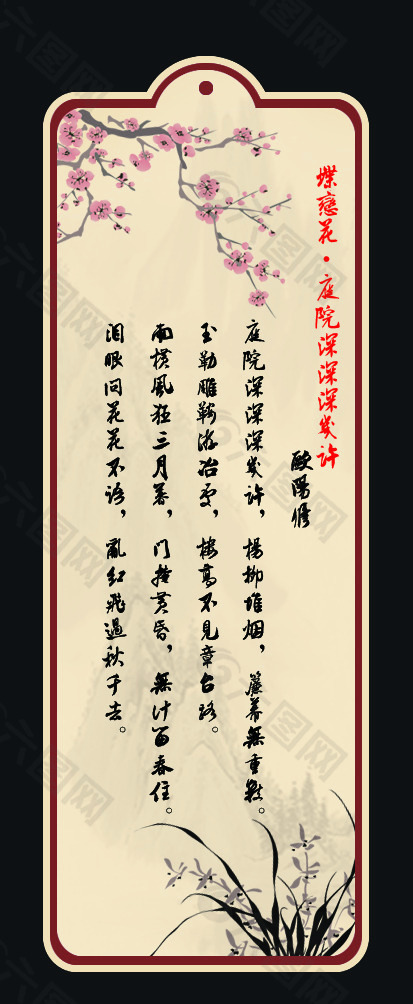 蝶戀花·庭院深深深幾许
歐陽修
庭院深深深幾许，楊柳堆烟，簾幕無重數。
玉勒雕鞍游冶處，樓高不見章台路。
雨横風狂三月暮，门掩黄昏，無计留春住。
泪眼问花花不语，亂红飛過秋千去。
六图网